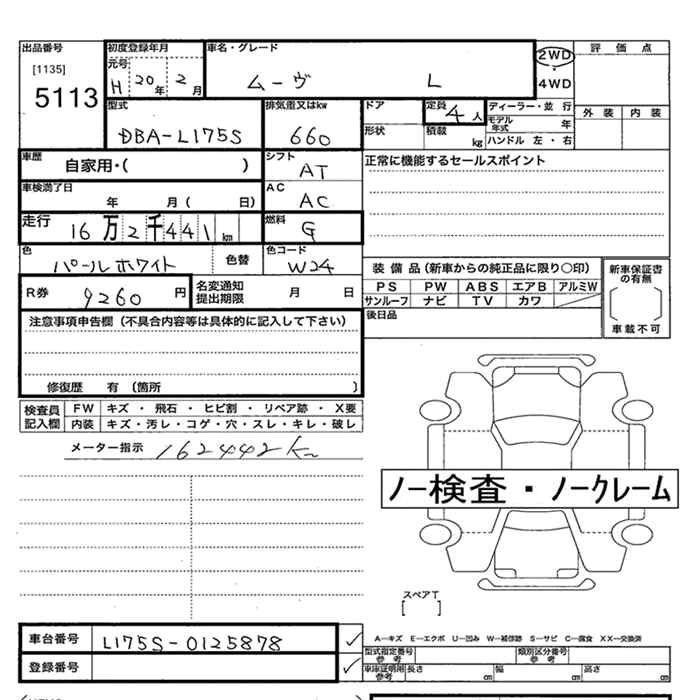 出品番号 初度登録年月 車名・グレード 2WD 評価点
[1135] 元号 ・
5113 H 20年 2月 ムーヴ L 4WD
型式 排気量又はkw ドア 定員 4人 ディーラー・並 行 外装 内装
モデル年式 年
DBA-L175S 660 形状 積載 kg ハンドル 左・右
車歴 自家用・( ) シフト AT 正常に機能するセールスポイント
車検満了日 年 月( 日) AC AC
走行 16万2千441km 燃料 G
色 パールホワイト 色替 色コード W24
装備品(新車からの純正品に限り○印) 新車保証書の有無
R券 9260円 名変通知提出期限 月 日 PS PW ABS エアB アルミW
サンルーフ ナビ TV カワ [ ]
注意事項申告欄(不具合内容等は具体的に記入して下さい) 後日品 車載不可
修復歴 有(箇所 )
検査員記入欄 FW キズ・飛石・ヒビ割・リペア跡・X要
内装 キズ・汚レ・コゲ・穴・スレ・キレ・破レ
メーター指示 162442Km
ノー検査・ノークレーム
スペアT
[ ]
車台番号 L175S-0125878 ✓ A―キズ E―エクボ U―凹み W―補修跡 S―サビ C―腐食 XX―交換済
型式指定番号参考 類別区分番号参考
登録番号 ✓ 車庫証明用参考 長さ cm 幅 cm 高さ cm